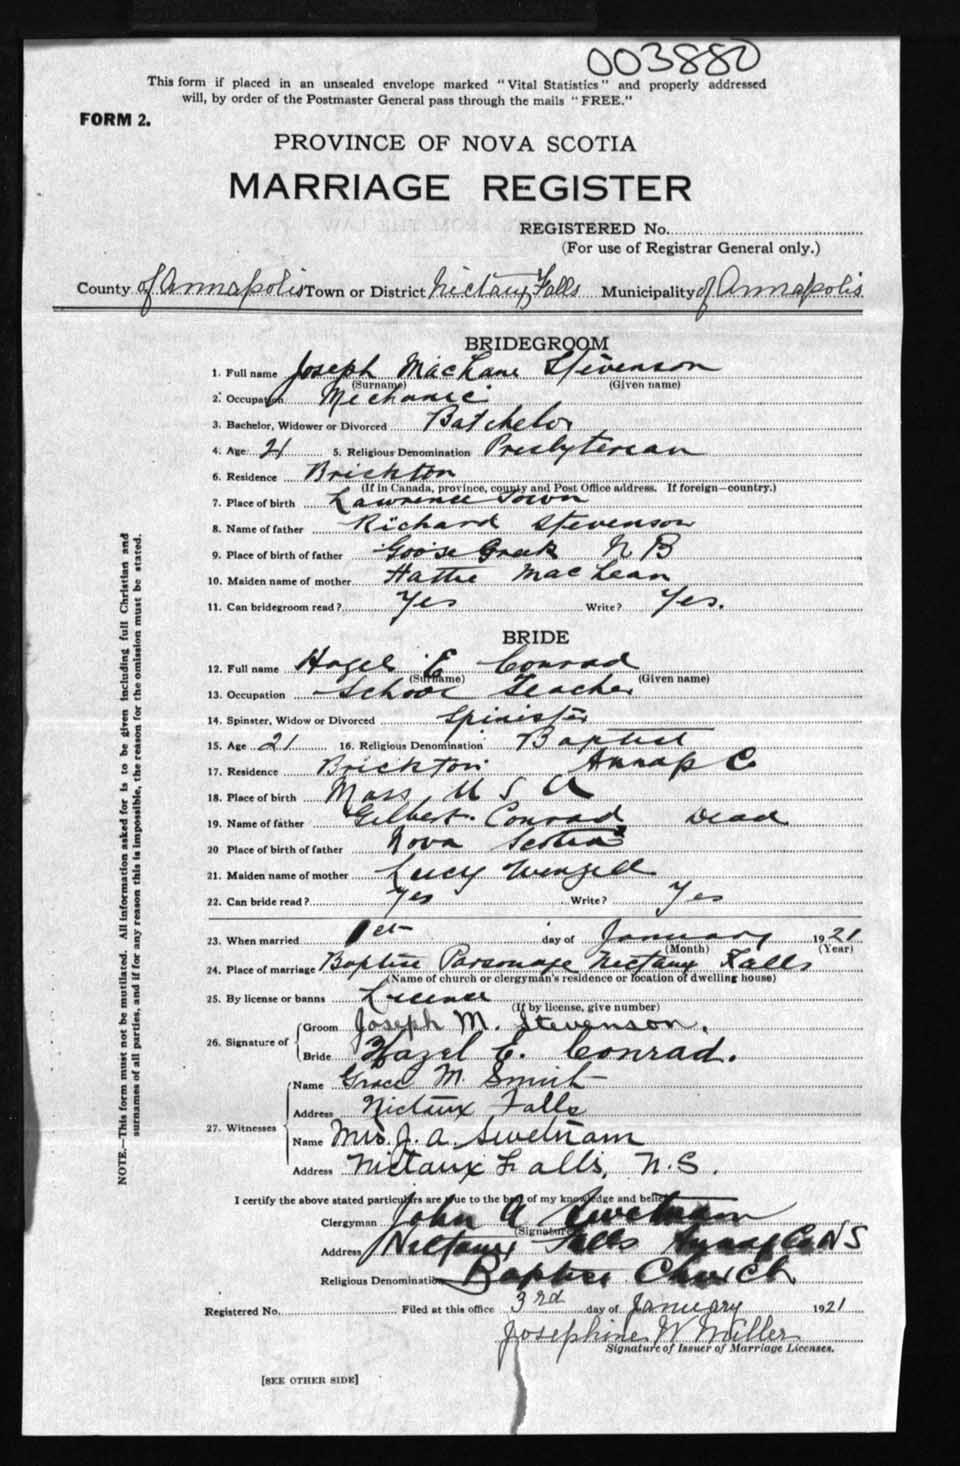 003880
This form if placed in an unsealed envelope marked "Vital Statistics" and properly addressed
will, by order of the Postmaster General pass through the mails "FREE."
FORM 2.
PROVINCE OF NOVA SCOTIA
MARRIAGE REGISTER
REGISTERED No.
(For use of Registrar General only.)
County of Annapolis Town or District Nictaux Falls Municipality of Annapolis
BRIDEGROOM
1. Full name Joseph MacLane Stevenson
(Surname) (Given name)
2. Occupation Mechanic
3. Bachelor, Widower or Divorced Batchelor
4. Age 21 5. Religious Denomination Presbyterean
6. Residence Brickton
(If in Canada, province, county and Post Office address. If foreign—country.)
7. Place of birth Lawrence Town
8. Name of father Richard Stevenson
9. Place of birth of father Goose Greek N B
10. Maiden name of mother Hattie MacLean
11. Can bridegroom read? Yes Write? Yes.
BRIDE
12. Full name Hazel E Conrad
(Surname) (Given name)
13. Occupation School Teacher
14. Spinster, Widow or Divorced Spinister
15. Age 21 16. Religious Denomination Baptist
17. Residence Brickton Annap C
18. Place of birth Mass U S A
19. Name of father Gilbert Conrad Dead
20 Place of birth of father Nova Scotia
21. Maiden name of mother Lucy Wenzell
22. Can bride read? Yes Write? Yes
23. When married 1st day of January 1921
(Month) (Year)
24. Place of marriage Baptist Parsonage Nictaux Falls
(Name of church or clergyman's residence or location of dwelling house)
25. By license or banns Licence
(If by license, give number)
26. Signature of Groom Joseph M. Stevenson.
Bride Hazel E. Conrad.
27. Witnesses Name Grace M. Smith
Address Nictaux Falls
Name Mrs. J. A. Swetnam
Address Nictaux Falls, N.S.
I certify the above stated particulars are true to the best of my knowledge and belief
Clergyman John A Swetnam
(Signature)
Address Nictaux Falls Annap Co N S
Religious Denomination Baptist Church
Registered No. Filed at this office 3rd day of January 1921
Josephine W Miller
Signature of Issuer of Marriage Licenses.
[SEE OTHER SIDE]
NOTE.—This form must not be mutilated. All information asked for is to be given including full Christian and
surnames of all parties, and if for any reason this is impossible, the reason for the omission must be stated.